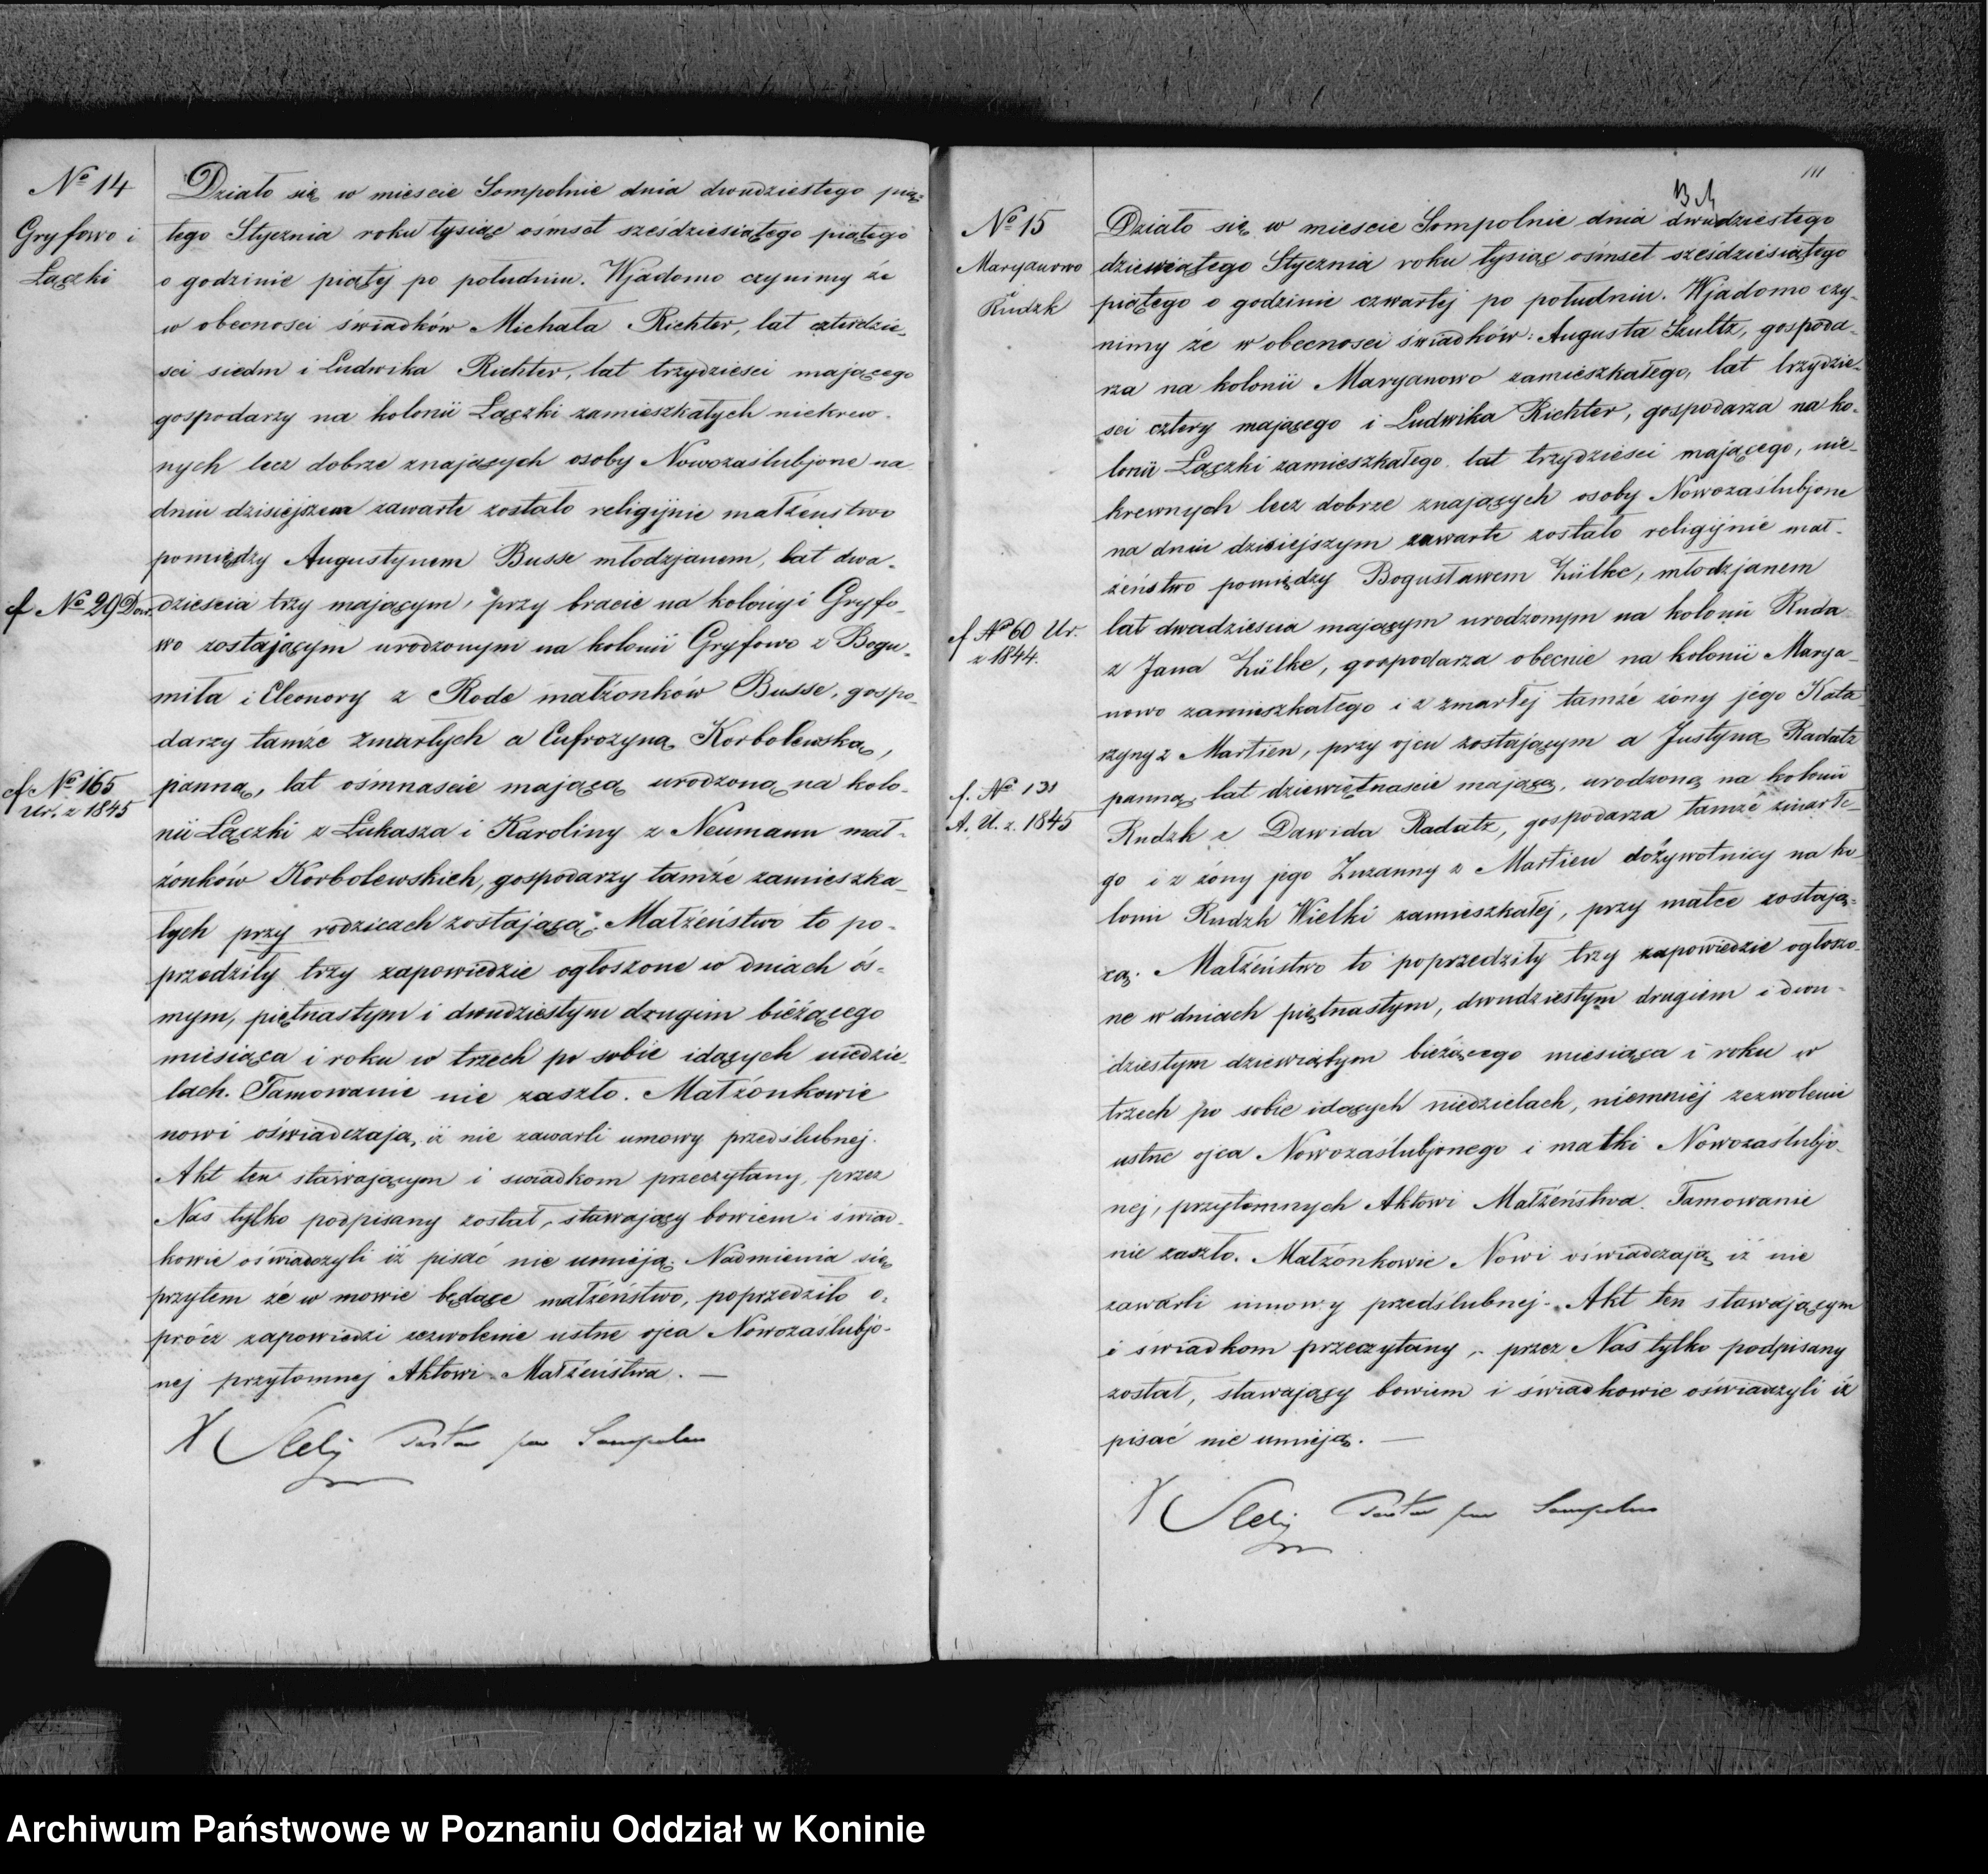 № 14
Gryfowo i
Łączki
Działo się w mieście Sompolnie dnia dwudziestego pią-
tego Stycznia roku tysiąc ośmset sześdziesiątego piątego
o godzinie piątej po południu. Wjadomo czynimy że
w obecności świadków Michała Richter, lat czterdzie-
ści siedm i Ludwika Richter, lat trzydzieści mającego
gospodarzy na kolonii Łączki zamieszkałych niekrew-
nych lecz dobrze znających osoby Nowozaślubjone na
dniu dzisiejszem zawarte zostało religijnie małżeństwo
pomiędzy Augustynem Busse młodzjanem, lat dwa-
cf № 29 
dzieścia trzy mającym, przy bracie na kolonyi Gryfo-
wo zostającym urodzonym na kolonii Gryfowo z Bogu-
miła i Eleonory z Rode małżonków Busse, gospo-
darzy tamże zmarłych a Eufrozyną Korbolewską,
cf № 165
Ur. z 1845
panną, lat ośmnaście mającą urodzoną na kolo-
nii Łączki z Łukasza i Karoliny z Neumann mał-
żonków Korbolewskich, gospodarzy tamże zamieszka-
łych przy rodzicach zostającą. Małżeństwo to po-
przedziły trzy zapowiedzie ogłoszone w dniach ós-
mym, piętnastym i dwudziestym drugim bieżącego
miesiąca i roku w trzech po sobie idących niedzie-
lach. Tamowanie nie zaszło. Małżonkowie
nowi oświadczają, iż nie zawarli umowy przedślubnej.
Akt ten stawającym i świadkom przeczytany, przez
Nas tylko podpisany został, stawający bowiem i świad-
kowie oświadczyli iż pisać nie umieją. Nadmienia się
przytem że w mowie będące małżeństwo, poprzedziło o-
prócz zapowiedzi zezwolenie ustne ojca Nowozaslubjo-
nej przytomnej Aktowi Małżeństwa. —
Pastor Sompolno
111
№ 15
Maryanowo
Rudzk
Działo się w mieście Sompolnie dnia dwudziestego
dziewiątego Stycznia roku tysiąc ośmset sześdziesiątego
piątego o godzinie czwartej po południu. Wjadomo czy-
nimy że w obecności świadków: Augusta Szultz, gospoda-
rza na kolonii Maryanowo zamieszkałego, lat trzydzie-
ści cztery mającego i Ludwika Richter, gospodarza na ko-
lonii Łączki zamieszkałego lat trzydzieści mającego, nie-
krewnych lecz dobrze znających osoby Nowozaślubjone
na dniu dzisiejszym zawarte zostało religijnie mał-
żeństwo pomiędzy Bogusławem Zülke, młodzjanem
cf № 60 Ur.
z 1844.
lat dwadzieścia mającym urodzonym na kolonii Ruda
z Jana Zülke, gospodarza obecnie na kolonii Marya-
nowo zamieszkałego i z zmarłej tamże żony jego Kata
rzyny z Martien, przy ojcu zostającym a Justyną Radatz
cf. № 131
A. U. z. 1845
panną lat dziewiętnaście mającą, urodzoną na kolonii
Rudzk z Dawida Radatz, gospodarza tamże zmarłe-
go i z żony jego Zuzanny z Martien dożywotnicy na ko-
lonii Rudzk Wielki zamieszkałej, przy matce zostają-
cą. Małżeństwo to poprzedziły trzy zapowiedzie ogłoszo-
ne w dniach piętnastym, dwudziestym drugiem i dwu-
dziestym dziewiątym bieżącego miesiąca i roku w
trzech po sobie idących niedzielach, niemniéj zezwolenie
ustne ojca Nowozaślubjonego i matki Nowozaślubjo-
nej, przytomnych Aktowi Małżeństwa. Tamowanie
nie zaszło. Małżonkowie Nowi oświadczają iż nie
zawarli umowy przedślubnej. Akt ten stawającym
i świadkom przeczytany, przez Nas tylko podpisany
został, stawający bowiem i świadkowie oświadczyli iż
pisać nie umieją. —
Pastor Sompolno
Archiwum Państwowe w Poznaniu Oddział w Koninie